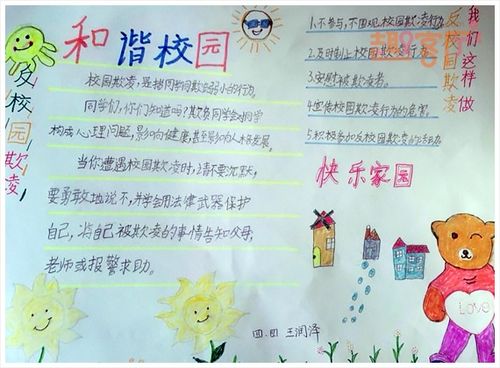 和谐校园
反校园欺凌
校园欺凌,是指同学间欺负弱小的行为,
同学们,你们知道吗?欺负同学会对同学
构成心理问题,影响健康,甚至影响人格发展,
当你遭遇校园欺凌时,请不要沉默,
要勇敢地说不,并学会用法律武器保护
自己,将自己被欺凌的事情告知父母,
老师或报警求助。
1.不参与,不围观校园欺凌行为
2.及时制止校园欺凌行为
3.安慰被欺凌者。
4.宣传校园欺凌行为的危害。
5.积极参加反校园欺凌的活动
反校园欺凌
我们这样做
快乐家园
LOVE
四.四 王润泽